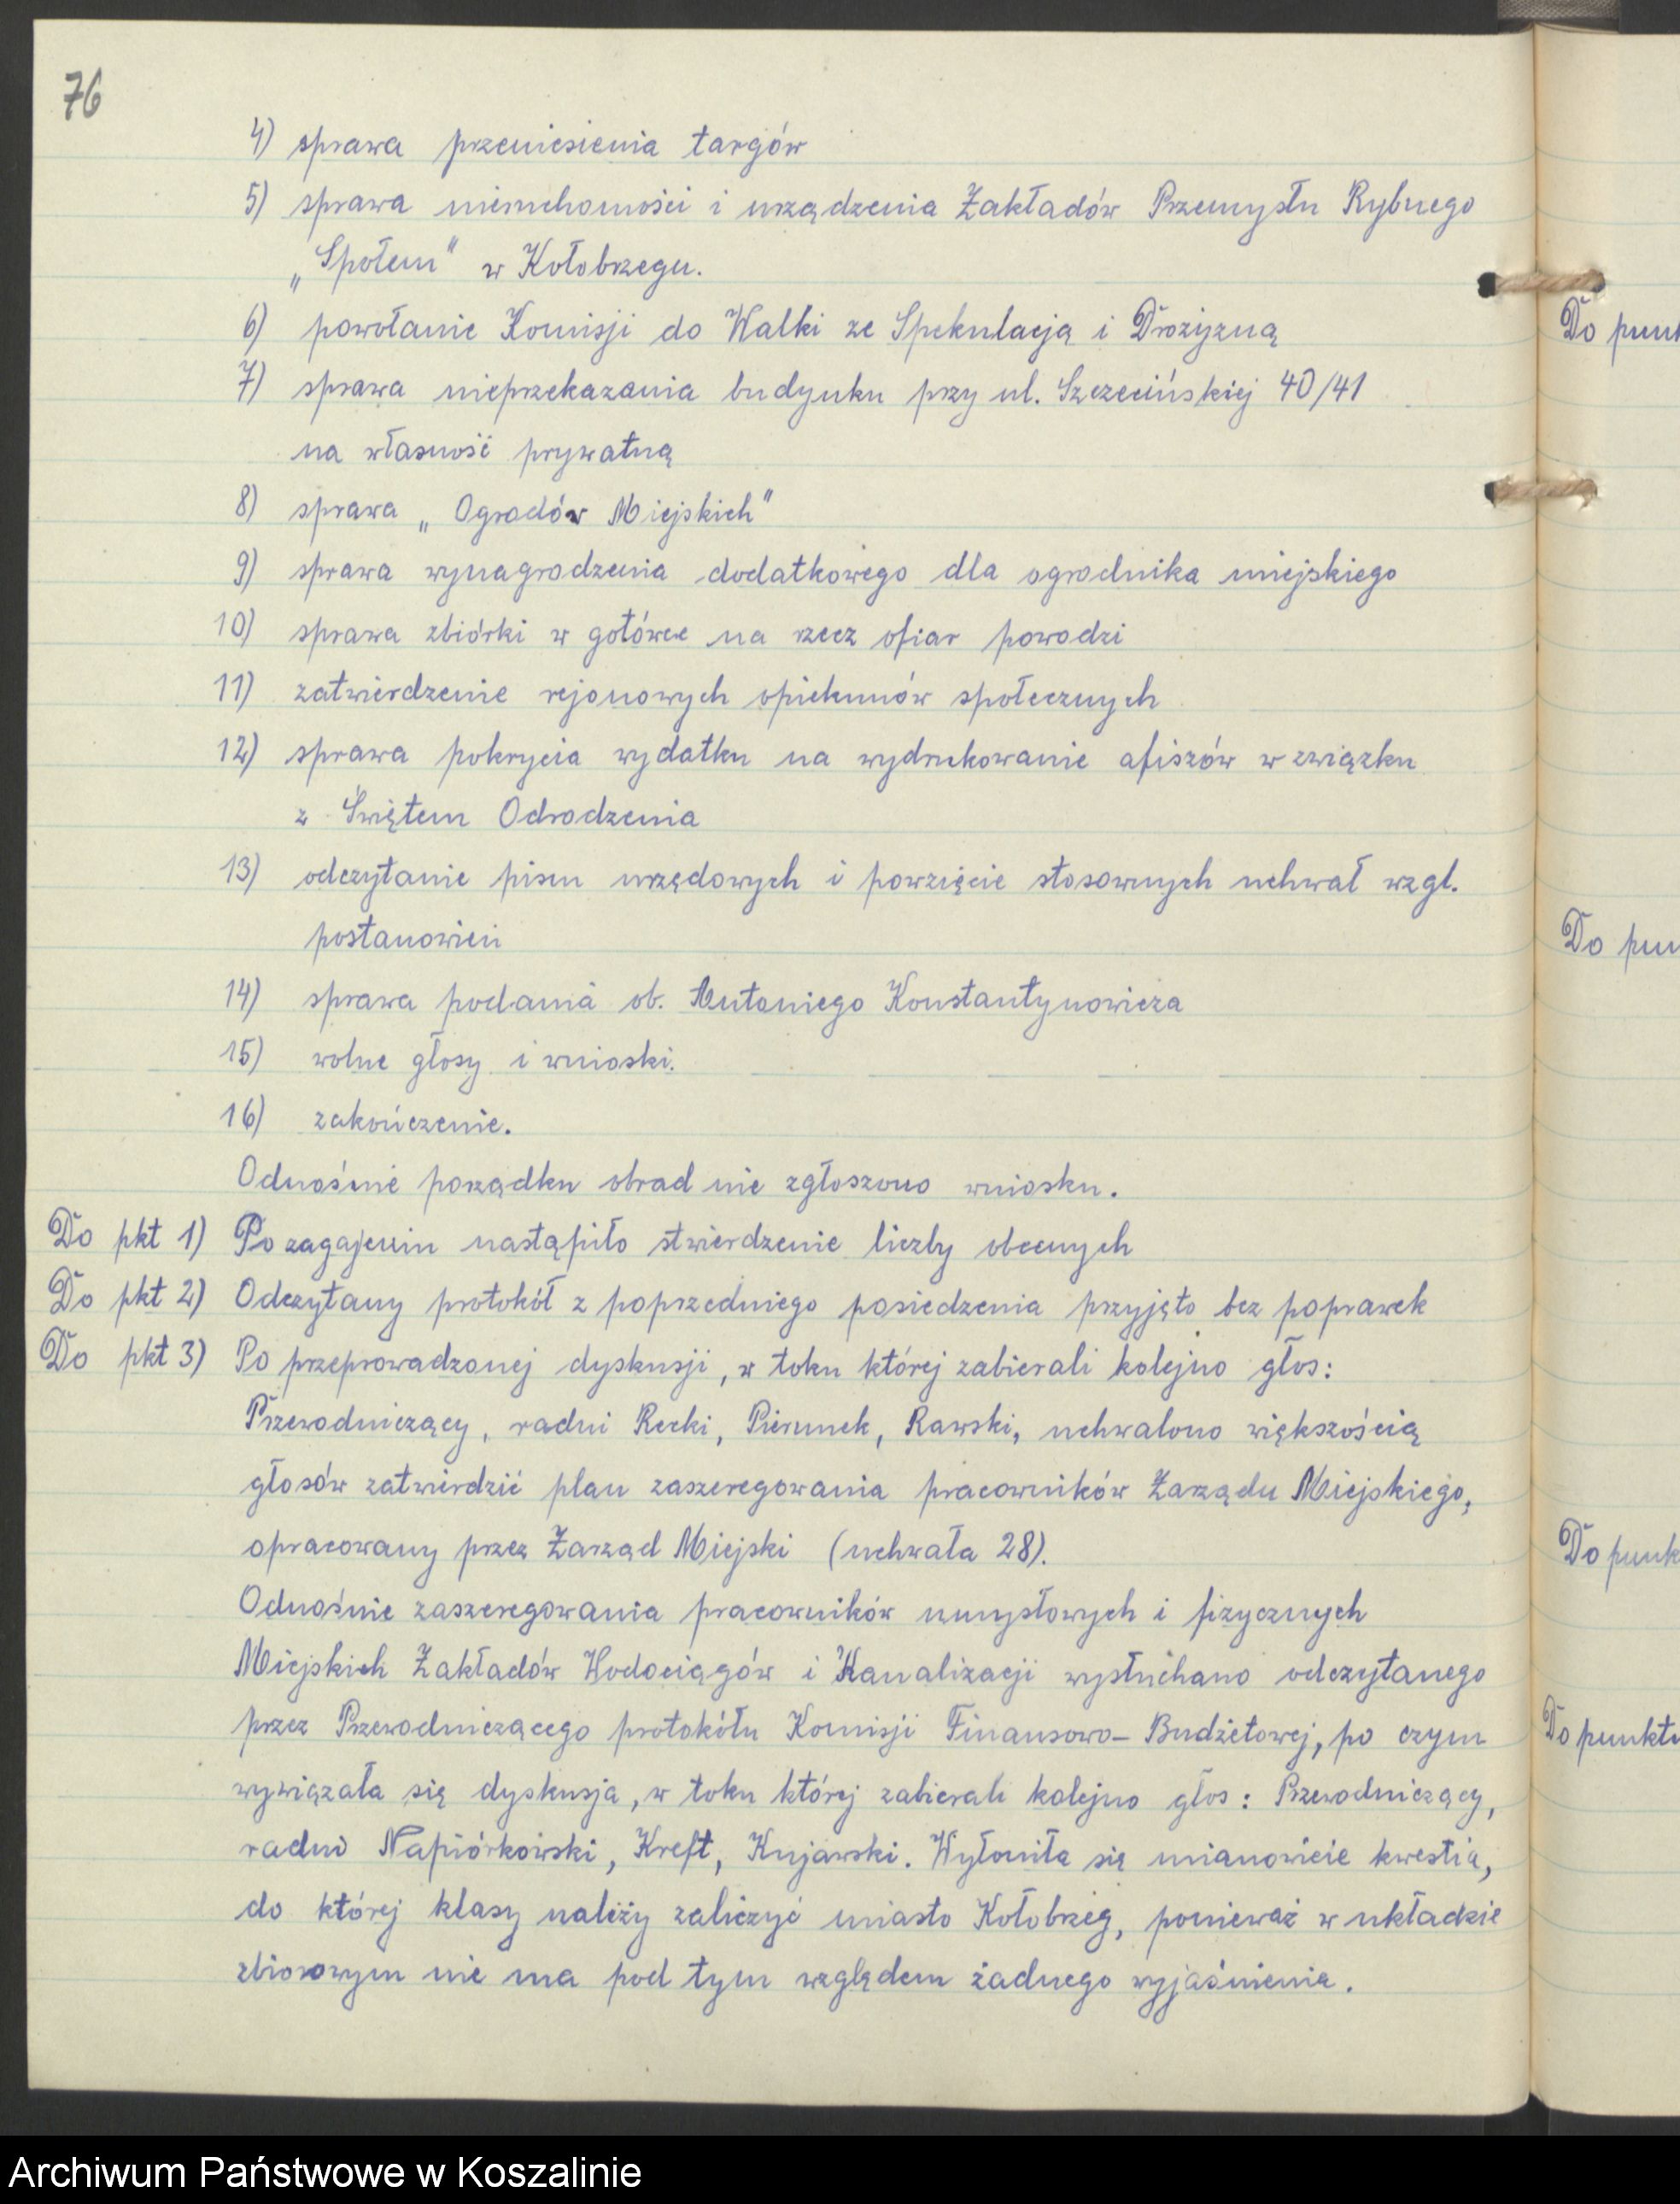 76
4) sprawa przeniesienia targów
5) sprawa nieruchomości i urządzenia Zakładów Przemysłu Rybnego
„Społem" w Kołobrzegu.
6) powołanie Komisji do Walki ze Spekulacją i Drożyzną
7) sprawa nieprzekazania budynku przy ul. Szczecińskiej 40/41
na własność prywatną
8) sprawa „Ogrodów Miejskich"
9) sprawa wynagrodzenia dodatkowego dla ogrodnika miejskiego
10) sprawa zbiórki w gotówce na rzecz ofiar powodzi
11) zatwierdzenie rejonowych opiekunów społecznych
12) sprawa pokrycia wydatku na wydrukowanie afiszów w związku
z Świętem Odrodzenia
13) odczytanie pism urzędowych i powzięcie stosownych uchwał wzgl.
postanowień
14) sprawa podania ob. Antoniego Konstantynowicza
15) wolne głosy i wnioski.
16) zakończenie.
Odnośnie porządku obrad nie zgłoszono wniosku.
Do pkt 1) Po zagajeniu nastąpiło stwierdzenie liczby obecnych
Do pkt 2) Odczytany protokół z poprzedniego posiedzenia przyjęto bez poprawek
Do pkt 3) Po przeprowadzonej dyskusji, w toku której zabierali kolejno głos:
Przewodniczący, radni Recki, Pierunek, Rawski, uchwalono większością
głosów zatwierdzić plan zaszeregowania pracowników Zarządu Miejskiego,
opracowany przez Zarząd Miejski (uchwała 28).
Odnośnie zaszeregowania pracowników umysłowych i fizycznych
Miejskich Zakładów Wodociągów i Kanalizacji wysłuchano odczytanego
przez Przewodniczącego protokółu Komisji Finansowo-Budżetowej, po czym
wywiązała się dyskusja, w toku której zabierali kolejno głos: Przewodniczący,
radni Napiórkowski, Kreft, Kujawski. Wyłoniła się mianowicie kwestia,
do której klasy należy zaliczyć miasto Kołobrzeg, ponieważ w układzie
zbiorowym nie ma pod tym względem żadnego wyjaśnienia.
Do punk
Do pun
Do punk
Do punktu
Archiwum Państwowe w Koszalinie